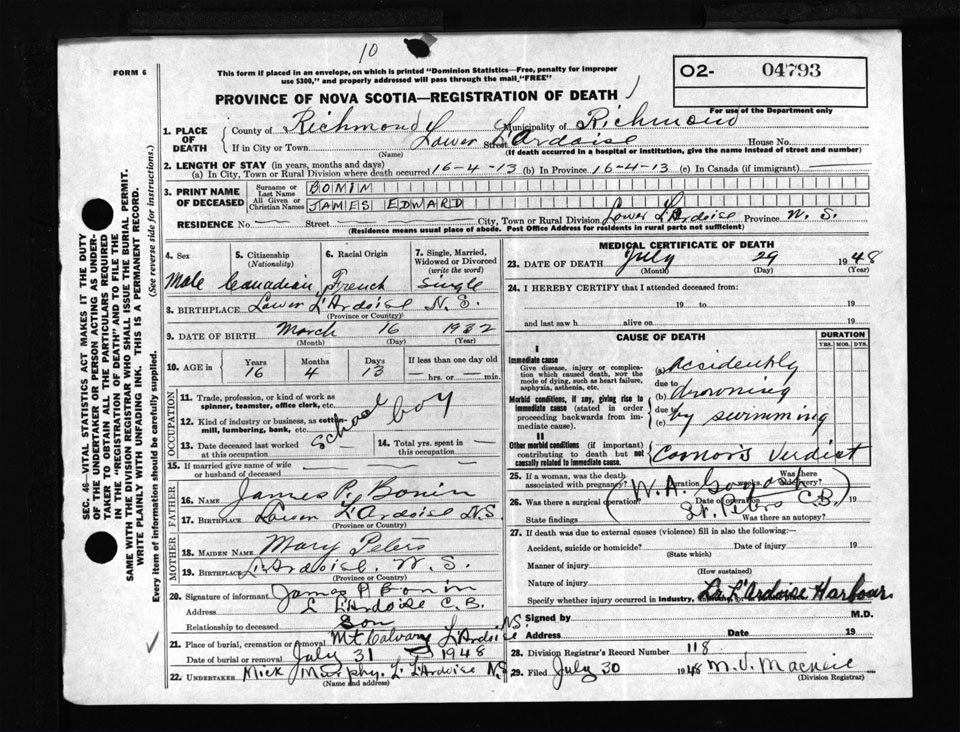 10
FORM 6
This form if placed in an envelope, on which is printed "Dominion Statistics—Free, penalty for improper
use $300," and properly addressed will pass through the mail "FREE"
O2- 04793
For use of the Department only
PROVINCE OF NOVA SCOTIA—REGISTRATION OF DEATH
1. PLACE OF DEATH
County of Richmond Municipality of Richmond
If in City or Town Lower L'Ardoise Street House No.
(Name) (If death occurred in a hospital or institution, give the name instead of street and number)
2. LENGTH OF STAY (in years, months and days)
(a) In City, Town or Rural Division where death occurred 16-4-13 (b) In Province 16-4-13 (c) In Canada (if immigrant)
3. PRINT NAME OF DECEASED
Surname or Last Name BONIN
All Given or Christian Names JAMES EDWARD
RESIDENCE No. Street City, Town or Rural Division Lower L'Ardoise Province N.S.
(Residence means usual place of abode. Post Office Address for residents in rural parts not sufficient)
4. Sex 5. Citizenship (Nationality) 6. Racial Origin 7. Single, Married, Widowed or Divorced (write the word)
Male Canadian French Single
8. BIRTHPLACE Lower L'Ardoise N.S.
(Province or Country)
9. DATE OF BIRTH March 16 1932
(Month) (Day) (Year)
10. AGE in Years Months Days If less than one day old
16 4 13 hrs. or min.
OCCUPATION
11. Trade, profession, or kind of work as
spinner, teamster, office clerk, etc.
12. Kind of industry or business, as cotton-
mill, lumbering, bank, etc.
School boy
13. Date deceased last worked at this occupation
14. Total yrs. spent in this occupation
15. If married give name of wife or husband of deceased
FATHER
16. Name James P. Bonin
17. Birthplace Lower L'Ardoise N.S.
(Province or Country)
MOTHER
18. MAIDEN NAME Mary Peters
19. Birthplace L'Ardoise. N.S.
(Province or Country)
20. Signature of informant James P Bonin
Address L L'Ardoise C.B.
Relationship to deceased Son
21. Place of burial, cremation or removal Mt Calvary L'Ardoise NS.
Date of burial or removal July 31 1948
22. UNDERTAKER Mick Murphy. L. L'Ardoise N.S
(Name and address)
MEDICAL CERTIFICATE OF DEATH
23. DATE OF DEATH July 29 1948
(Month) (Day) (Year)
24. I HEREBY CERTIFY that I attended deceased from:
19 to 19
and last saw h alive on 19
CAUSE OF DEATH DURATION
YRS. MOS. DYS.
I
Immediate cause
Give disease, injury or complica-
tion which caused death, NOT the
mode of dying, such as heart failure,
asphyxia, asthenia, etc.
(a) accidently
due to
Morbid conditions, if any, giving rise to
immediate cause (stated in order
proceeding backwards from im-
mediate cause).
(b) drowning
due to
(c) by swimming
II
Other morbid conditions (if important)
contributing to death but not
causally related to immediate cause.
Coonor's Verdict
25. If a woman, was the death associated with pregnancy? Duration weeks. Was there delivery?
(W. A.
26. Was there a surgical operation? Date of operation 19
St. Peters C.B.)
State findings Was there an autopsy?
27. If death was due to external causes (violence) fill in also the following:—
Accident, suicide or homicide? Date of injury 19
(State which)
Manner of injury
(How sustained)
Nature of injury
Specify whether injury occurred in Industry, L'Ardoise Harbour
Signed by M.D.
Address Date 19
28. Division Registrar's Record Number 118
29. Filed July 30 1948 M. J. Macneil
(Division Registrar)
SEC. 46—VITAL STATISTICS ACT MAKES IT THE DUTY
OF THE UNDERTAKER OR PERSON ACTING AS UNDER-
TAKER TO OBTAIN ALL THE PARTICULARS REQUIRED
IN THE "REGISTRATION OF DEATH" AND TO FILE THE
SAME WITH THE DIVISION REGISTRAR WHO SHALL ISSUE THE BURIAL PERMIT.
WRITE PLAINLY WITH UNFADING INK. THIS IS A PERMANENT RECORD.
Every item of information should be carefully supplied. (See reverse side for instructions.)